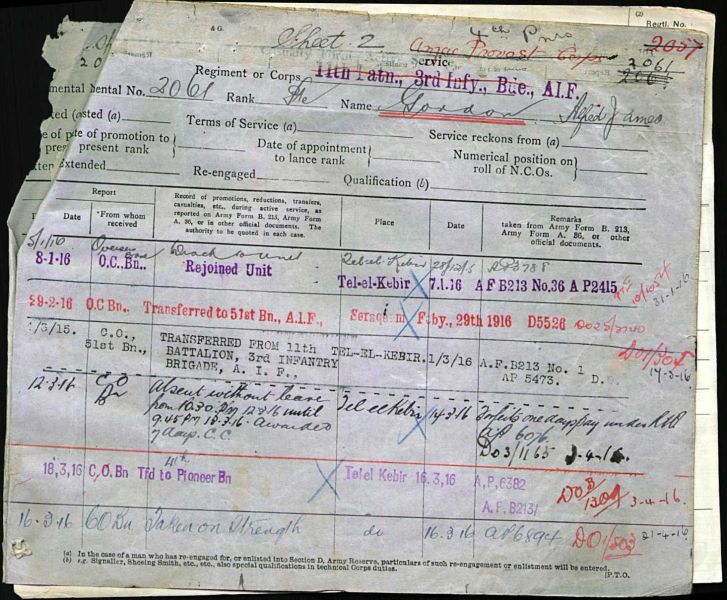 (2)
Regtl. No.
A G
Sheet 2. 4th Pnrs
Anzac Provost Corps
2057
2061
Service
Regiment or Corps 11th Batn., 3rd Infy., Bde., A.I.F.
mental dental No. 2061 Rank Pte Name Gordon Alfred James
ted (a) Terms of Service (a) Service reckons from (a)
te of promotion to present rank Date of appointment to lance rank Numerical position on roll of N.C.Os.
Extended Re-engaged Qualification (b)
Report
Date
*From whom received
Record of promotions, reductions, transfers, casualties, etc., during active service, as reported on Army Form B. 213, Army Form A. 36, or in other official documents. The authority to be quoted in each case.
Place
Date
Remarks taken from Army Form B. 213, Army Form A. 36, or other official documents.
5/1/16 Overseas Base Disch to unit Tel-el-Kebir 28/12/15 AP3788
8-1-16 O.C., Bn., Rejoined Unit Tel-el-Kebir 7.1.16 A F B213 No.36 A P2415
31-1-16
29-2-16 O.C Bn., Transferred to 51st Bn., A.I.F., Serapeum Feby., 29th 1916 D5526
1/3/15. C.O., 51st Bn., TRANSFERRED FROM 11th BATTALION, 3rd INFANTRY BRIGADE, A. I. F., TEL-EL-KEBIR. 1/3/16 A.F.B213 No. 1 D.O.
AP 5473.
17-3-16
12.3.16 CO Bn Absent without leave from 10.30 PM 12.3.16 until 9.45 PM 13.3.16. Awarded 7 days C.C. Tel el Kebir 14.3.16 Forfeits one days pay under RW
AP 6076.
DO3/1165 3-4-16.
18,3,16 C,O.Bn Tfd to 4th Pioneer Bn Telel Kebir 16.3,16 A,P,6382
A.F.B213/
DO3/1309 3-4-16.
16-3-16 CO Bn Taken on Strength do 16.3.16 AP6894 DO1/503 21-4-16
(a) In the case of a man who has re-engaged for, or enlisted into Section D, Army Reserve, particulars of such re-engagement or enlistment will be entered.
(b) e.g. Signaller, Shoeing Smith, etc., etc., also special qualifications in technical Corps duties.
[P.T.O.